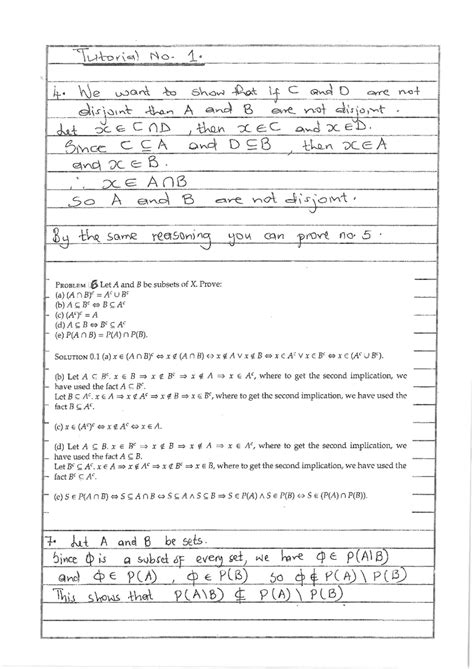 Tutorial No. 1.
4. We want to show that if C and D are not
disjoint then A and B are not disjoint.
Let x ∈ C∩D, then x∈C and x∈D.
Since C ⊆ A and D ⊆ B, then x∈A
and x∈B.
∴ x∈ A∩B
So A and B are not disjoint.
By the same reasoning you can prove no. 5.
PROBLEM 6 Let A and B be subsets of X. Prove:
(a) (A ∩ B)ᶜ = Aᶜ ∪ Bᶜ
(b) A ⊆ Bᶜ ⇔ B ⊆ Aᶜ
(c) (Aᶜ)ᶜ = A
(d) A ⊆ B ⇔ Bᶜ ⊆ Aᶜ
(e) P(A ∩ B) = P(A) ∩ P(B).
SOLUTION 0.1 (a) x ∈ (A ∩ B)ᶜ ⇔ x ∉ (A ∩ B) ⇔ x ∉ A ∨ x ∉ B ⇔ x ∈ Aᶜ ∨ x ∈ Bᶜ ⇔ x ∈ (Aᶜ ∪ Bᶜ).
(b) Let A ⊂ Bᶜ. x ∈ B ⇒ x ∉ Bᶜ ⇒ x ∉ A ⇒ x ∈ Aᶜ, where to get the second implication, we
have used the fact A ⊂ Bᶜ.
Let B ⊂ Aᶜ. x ∈ A ⇒ x ∉ Aᶜ ⇒ x ∉ B ⇒ x ∈ Bᶜ, where to get the second implication, we have used the
fact B ⊆ Aᶜ.
(c) x ∈ (Aᶜ)ᶜ ⇔ x ∉ Aᶜ ⇔ x ∈ A.
(d) Let A ⊆ B. x ∈ Bᶜ ⇒ x ∉ B ⇒ x ∉ A ⇒ x ∈ Aᶜ, where to get the second implication, we
have used the fact A ⊆ B.
Let Bᶜ ⊆ Aᶜ. x ∈ A ⇒ x ∉ Aᶜ ⇒ x ∉ Bᶜ ⇒ x ∈ B, where to get the second implication, we have used the
fact Bᶜ ⊂ Aᶜ.
(e) S ∈ P(A ∩ B) ⇔ S ⊆ A ∩ B ⇔ S ⊆ A ∧ S ⊆ B ⇒ S ∈ P(A) ∧ S ∈ P(B) ⇔ S ∈ (P(A) ∩ P(B)).
7. Let A and B be sets.
Since ϕ is a subset of every set, we have ϕ ∈ P(A\B)
and ϕ ∈ P(A), ϕ ∈ P(B) so ϕ ∉ P(A) \ P(B)
This shows that P(A\B) ⊈ P(A) \ P(B)